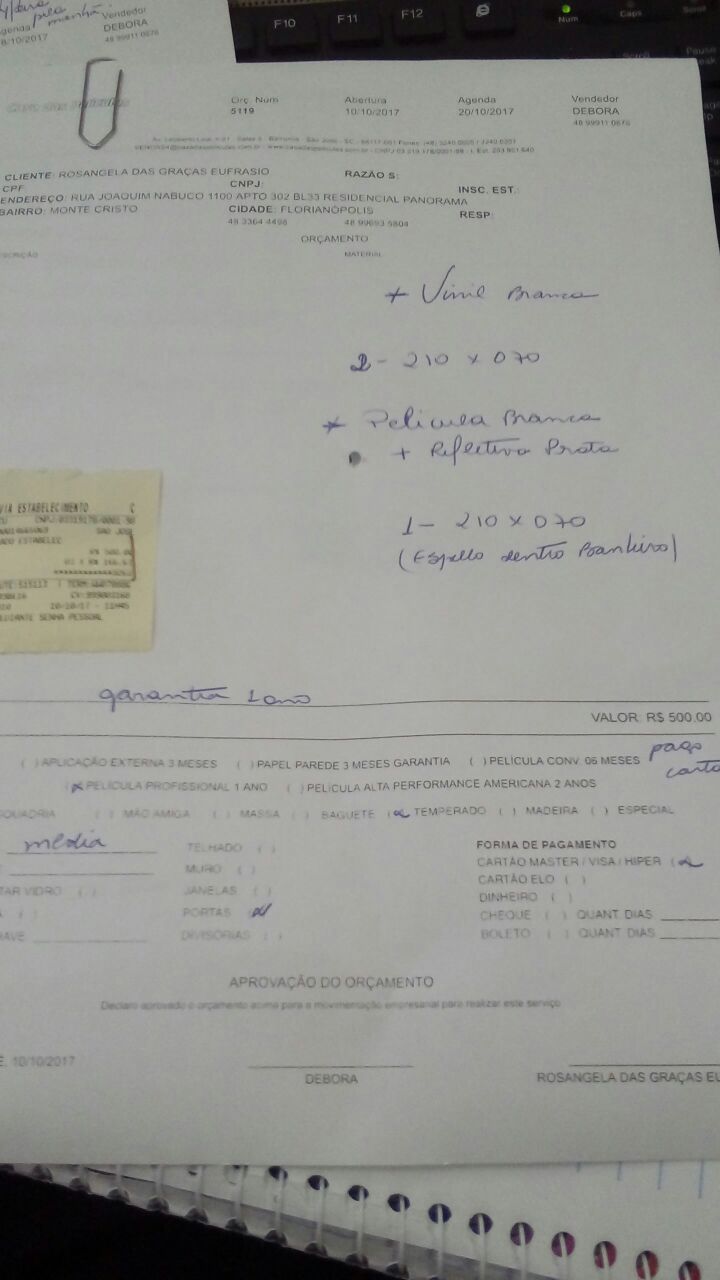 pela manhã
Vendedor
agenda
DEBORA
8/10/2017
48 99911 0676
F10
F11
F12
Num
Caps
Scroll
Pause
Orç. Num
Abertura
Agenda
Vendedor
5119
10/10/2017
20/10/2017
DEBORA
48 99911 0676
CLIENTE: ROSANGELA DAS GRAÇAS EUFRASIO
RAZÃO S:
CPF
CNPJ:
INSC. EST.:
ENDEREÇO: RUA JOAQUIM NABUCO 1100 APTO 302 BL33 RESIDENCIAL PANORAMA
BAIRRO: MONTE CRISTO
CIDADE: FLORIANÓPOLIS
RESP:
48 3364 4498
48 99693 5804
ORÇAMENTO
MATERIAL
+ Vinil Branco
2 - 210 x 070
* Pelicula Branca
+ Refletiva Prata
1 - 210 x 070
(Espello dentro Banheiro)
VIA ESTABELECIMENTO C
SAO JOSE
R$ 500.00
10/10/17 - 11H45
MEDIANTE SENHA PESSOAL
garantia 1 ano
VALOR: R$ 500.00
( ) APLICAÇÃO EXTERNA 3 MESES ( ) PAPEL PAREDE 3 MESES GARANTIA ( ) PELÍCULA CONV. 06 MESES
pago
cartão
(x PELÍCULA PROFISSIONAL 1 ANO ( ) PELÍCULA ALTA PERFORMANCE AMERICANA 2 ANOS
( ) MÃO AMIGA ( ) MASSA ( ) BAGUETE (x TEMPERADO ( ) MADEIRA ( ) ESPECIAL
media
TELHADO ( )
FORMA DE PAGAMENTO
MURO ( )
CARTÃO MASTER / VISA / HIPER (x
TAR VIDRO ( )
JANELAS ( )
CARTÃO ELO ( )
PORTAS (x
DINHEIRO ( )
DIVISÓRIAS ( )
CHEQUE ( ) QUANT DIAS
BOLETO ( ) QUANT DIAS
APROVAÇÃO DO ORÇAMENTO
Declaro aprovado o orçamento acima para a movimentação empresarial para realizar este serviço
10/10/2017
DEBORA
ROSANGELA DAS GRAÇAS EU